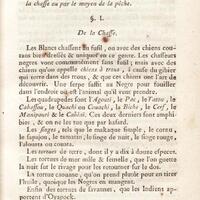 la chasse ou par le moyen de la pêche.
§. I.
De la Chasse.
Les Blancs chassent au fusil, ou avec des chiens cou-
rans bien dressés & uniques en ce genre. Les chasseurs
negres vont communément sans fusil; mais avec des
chiens qu'on appelle chiens à trous, à cause du gibier
qui terre dans des trous, & que ces chiens ont l'art de
découvrir. Une serpe suffit au Negre pour fouiller
dans l'endroit où est l'animal qu'il veut prendre.
Les quadrupedes sont l'Agouti, le Pac, le Tatou, le
Cabassou, la Quachi ou Couachi, la Biche, le Cerf, le
Maniponri & le Cabiai. Ces deux derniers sont amphi-
bies, & on ne les tue que par hasard.
Les singes, tels que le makaque simple, le corne,
le sapajou, le tamarin, le singe de nuit, le singe rouge,
l'alouate ou couata.
Les tortues de terre, dont il y a dix à douze especes.
Les tortues de mer mâle & femelle, que l'on guette
la nuit sur le rivage pour les retourner sur le dos.
La tortue caouane, qu'on prend plutôt pour en tirer
l'huile, quoique les Negres en mangent.
Enfin des tortues de savannes, que les Indiens ap-
portent d'Oyapock.